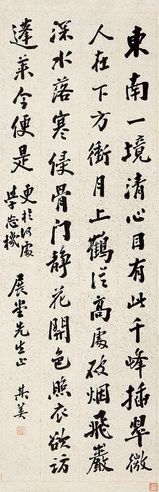 東南一境清心目有此千峰插翠微
人在下方衝月上鶴從高處破烟飛巖
深水落寒侵骨门靜花開色照衣欲訪
蓬萊今便是更於何處
學忘機
展堂先生正 其美